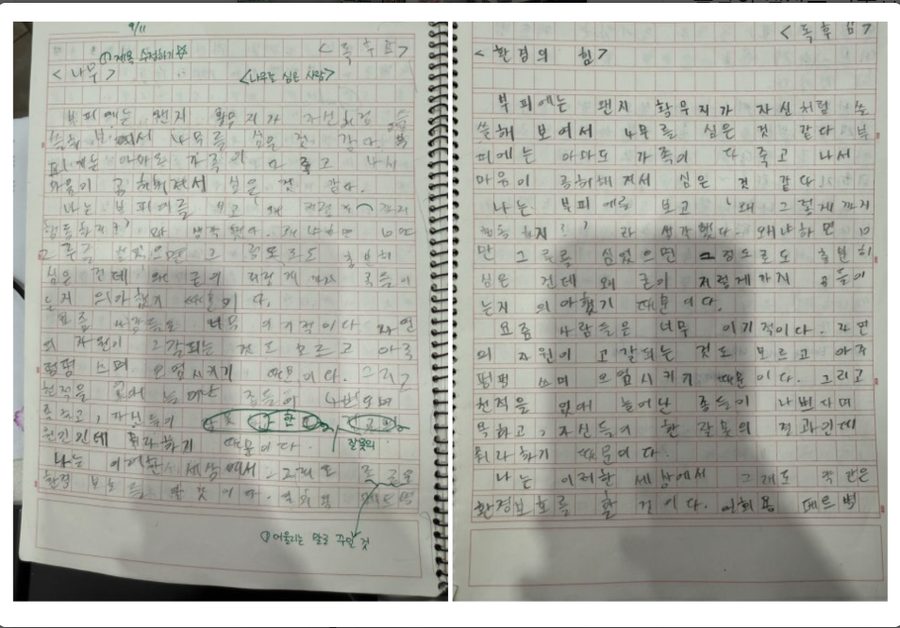 9/11
① 제목 수정하기 ☆
<독후감>
<나무>
<나무를 심은 사람>
부피에는 왠지 황무지가 자신처럼 쓸
쓸해 보여서 나무를 심은 것 같다. 부
피에는 아마도 가족이 다 죽고 나서
마음이 공허해져서 심은 것 같다.
나는 부피에를 보고 '왜 까지
행동하지?' 라 생각했다. 왜냐하면 10만
그루를 심었으면 그 정도로도 충분히
심은 건데 왜 굳이 저렇게까지
는지 의아했기 때문이다.
요즘 사람들은 너무 이기적이다. 자연
의 자원이 고갈되는 것도 모르고 아주
펑펑 쓰며 오염시키기 때문이다. 그리고
천적을 없애 늘어난 종들이 나쁘다며
욕하고, 자신들의 한
잘못의
원인인데 뭐라하기 때문이다.
나는 이러한 세상에서 그래도
환경 보호를 할 것이다.
① 어울리는 말로 쓰일 것
<독후감>
<환경의 힘>
부피에는 왠지 황무지가 자신처럼 쓸
쓸해 보여서 나무를 심은 것 같다. 부
피에는 아마도 가족이 다 죽고 나서
마음이 공허해져서 심은 것 같다.
나는 부피에를 보고 '왜 그렇게까지
행동하지?' 라 생각했다. 왜냐하면 10
만 그루를 심었으면 그 정도로도 충분히
심은 건데 왜 굳이 저렇게까지 공들이
는지 의아했기 때문이다.
요즘 사람들은 너무 이기적이다. 자연
의 자원이 고갈되는 것도 모르고 아주
펑펑 쓰며 오염시키기 때문이다. 그리고
천적을 없애 늘어난 종들이 나쁘다며
욕하고, 자신들의 한 잘못의 결과인데
뭐라하기 때문이다.
나는 이러한 세상에서 그래도 작은
환경보호를 할 것이다. 일회용 페트병